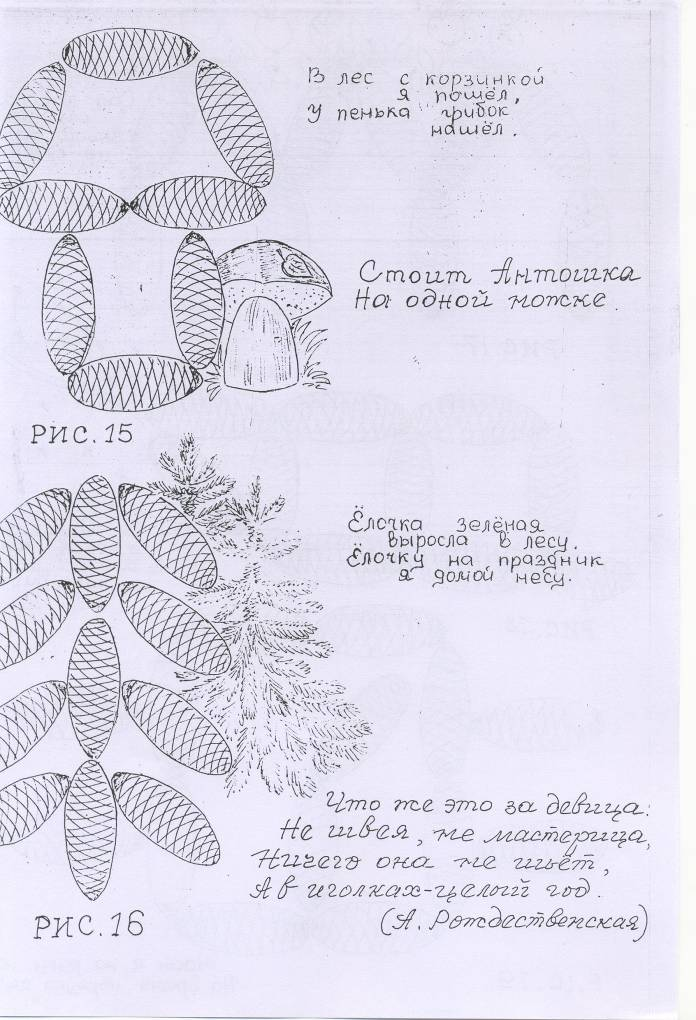 В лес с корзинкой
я пошёл,
У пенька грибок
нашёл.
Стоит Антошка
На одной ножке.
РИС. 15
Ёлочка зелёная
выросла в лесу.
Ёлочку на праздник
я домой несу.
Что же это за девица:
Не швея, не мастерица,
Ничего она не шьёт,
А в иголках-целый год.
(А. Рождественская)
РИС. 16